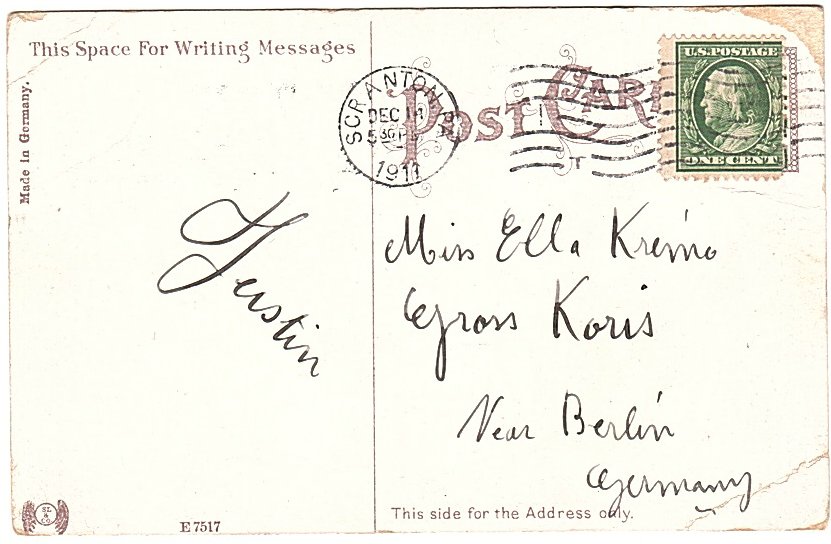 This Space For Writing Messages
POST CARD
Made in Germany.
SCRANTON PA
DEC 14
5 30 P
1911
U.S. POSTAGE
ONE CENT
Miss Ella Kremo
Gross Koris
Near Berlin
Germany
SL & Co
E 7517
This side for the Address only.